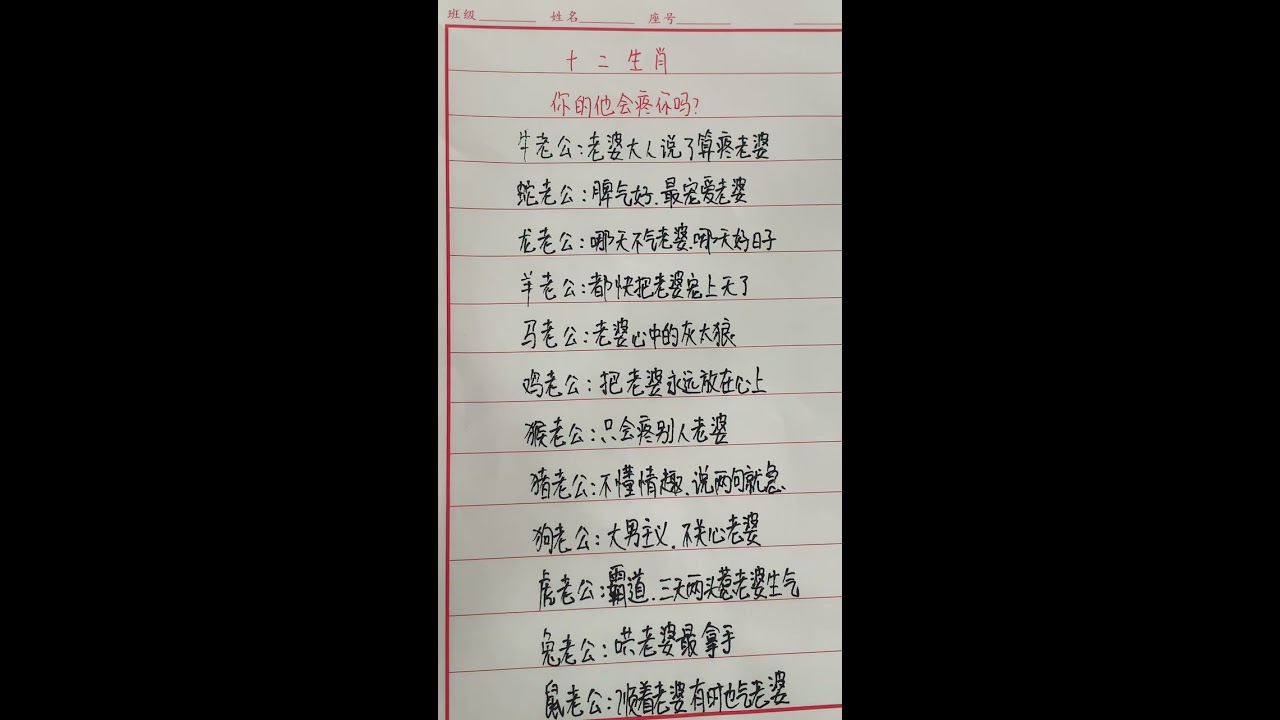 班级 姓名 座号
十二生肖
你的他会疼你吗?
牛老公:老婆大人说了算疼老婆
蛇老公:脾气好.最宠爱老婆
龙老公:哪天不气老婆.哪天好日子
羊老公:都快把老婆宠上天了
马老公:老婆心中的灰太狼.
鸡老公:把老婆永远放在心上
猴老公:只会疼别人老婆
猪老公:不懂情趣、说两句就急.
狗老公:大男主义.不关心老婆
虎老公:霸道.三天两头惹老婆生气
兔老公:哄老婆最拿手
鼠老公:顺着老婆有时也气老婆